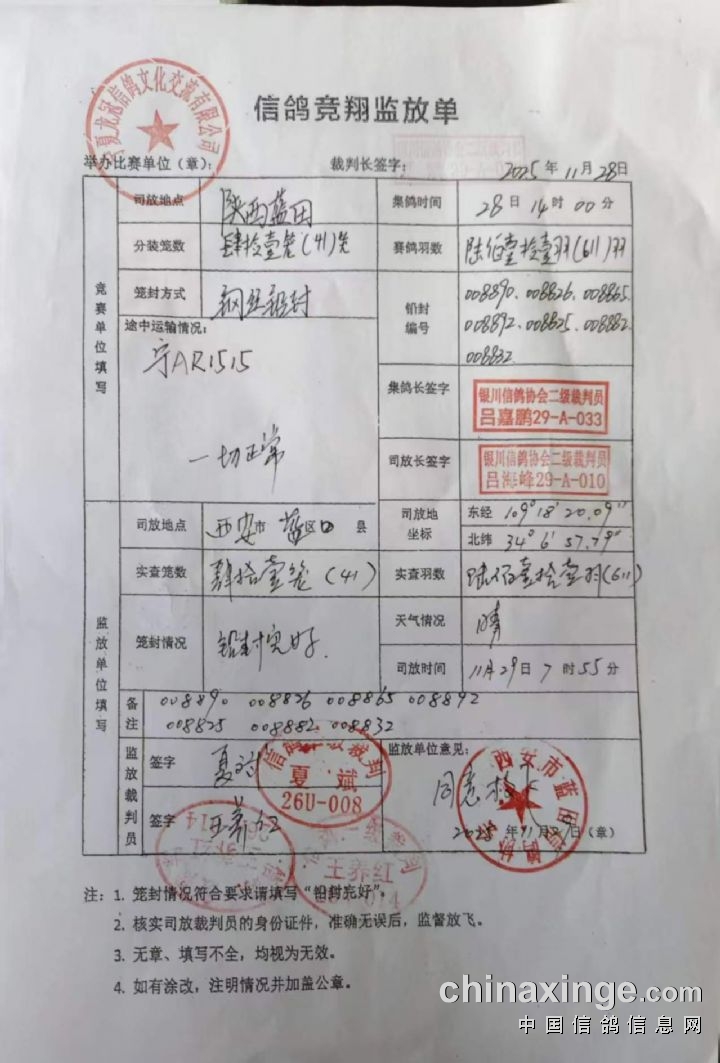 夏龙冠信鸽文化交流有限公司
信鸽竞翔监放单
举办比赛单位（章）：
裁判长签字：
2025年11月28日
竞赛单位填写
司放地点
陕西蓝田
集鸽时间
28日14时00分
分装笼数
肆拾壹笼(41)笼
赛鸽羽数
陆佰壹拾壹羽(611)羽
笼封方式
钢丝铅封
铅封编号
008890、008826、008865、
008892、008825、008882、
008832
途中运输情况：
宁AR1515
一切正常
集鸽长签字
银川信鸽协会二级裁判员
吕嘉鹏29-A-033
司放长签字
银川信鸽协会二级裁判员
吕海峰29-A-010
监放单位填写
司放地点
西安市 蓝区口县
司放地坐标
东经 109°18′20.09″
北纬 34°6′57.79″
实查笼数
肆拾壹笼(41)
实查羽数
陆佰壹拾壹羽(611)
笼封情况
铅封完好.
天气情况
晴
司放时间
11月29日7时55分
备注
008890 008826 008865 008892
008825 008882 008832
监放裁判员
签字
夏斌
夏斌
26U-008
签字
王养红
王养红
监放单位意见：
同意
西安市蓝田
鸽协
2025年11月29日（章）
注：1. 笼封情况符合要求请填写“铅封完好”。
2. 核实司放裁判员的身份证件，准确无误后，监督放飞。
3. 无章、填写不全，均视为无效。
4. 如有涂改，注明情况并加盖公章。
chinaxinge.com
中国信鸽信息网